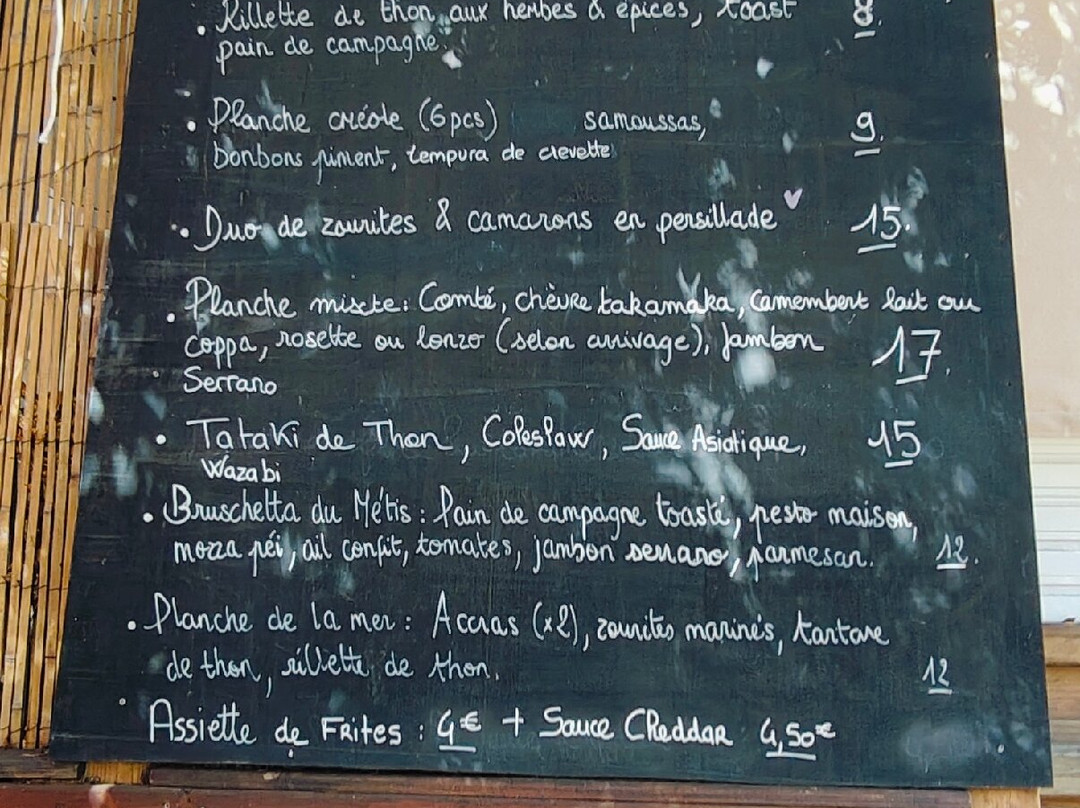 • Rillette de thon aux herbes & épices, toast 8.
pain de campagne.
• Planche créole (6pcs) samoussas, 9.
bonbons piment, tempura de crevette
• Duo de zourites & camarons en persillade 15.
• Planche mixte: Comté, chèvre takamaka, Camembert lait cru
coppa, rosette ou lonzo (selon arrivage), Jambon 17.
Serrano
• Tataki de Thon, Coleslaw, Sauce Asiatique, 15
Wazabi
• Bruschetta du Métis : Pain de campagne toasté, pesto maison,
mozza péi, ail confit, tomates, jambon serrano, parmesan. 12.
• Planche de la mer : Accras (x2), zourites marinés, tartare
de thon, rillette de thon. 12
• Assiette de Frites : 4€ + Sauce Cheddar 4,50€